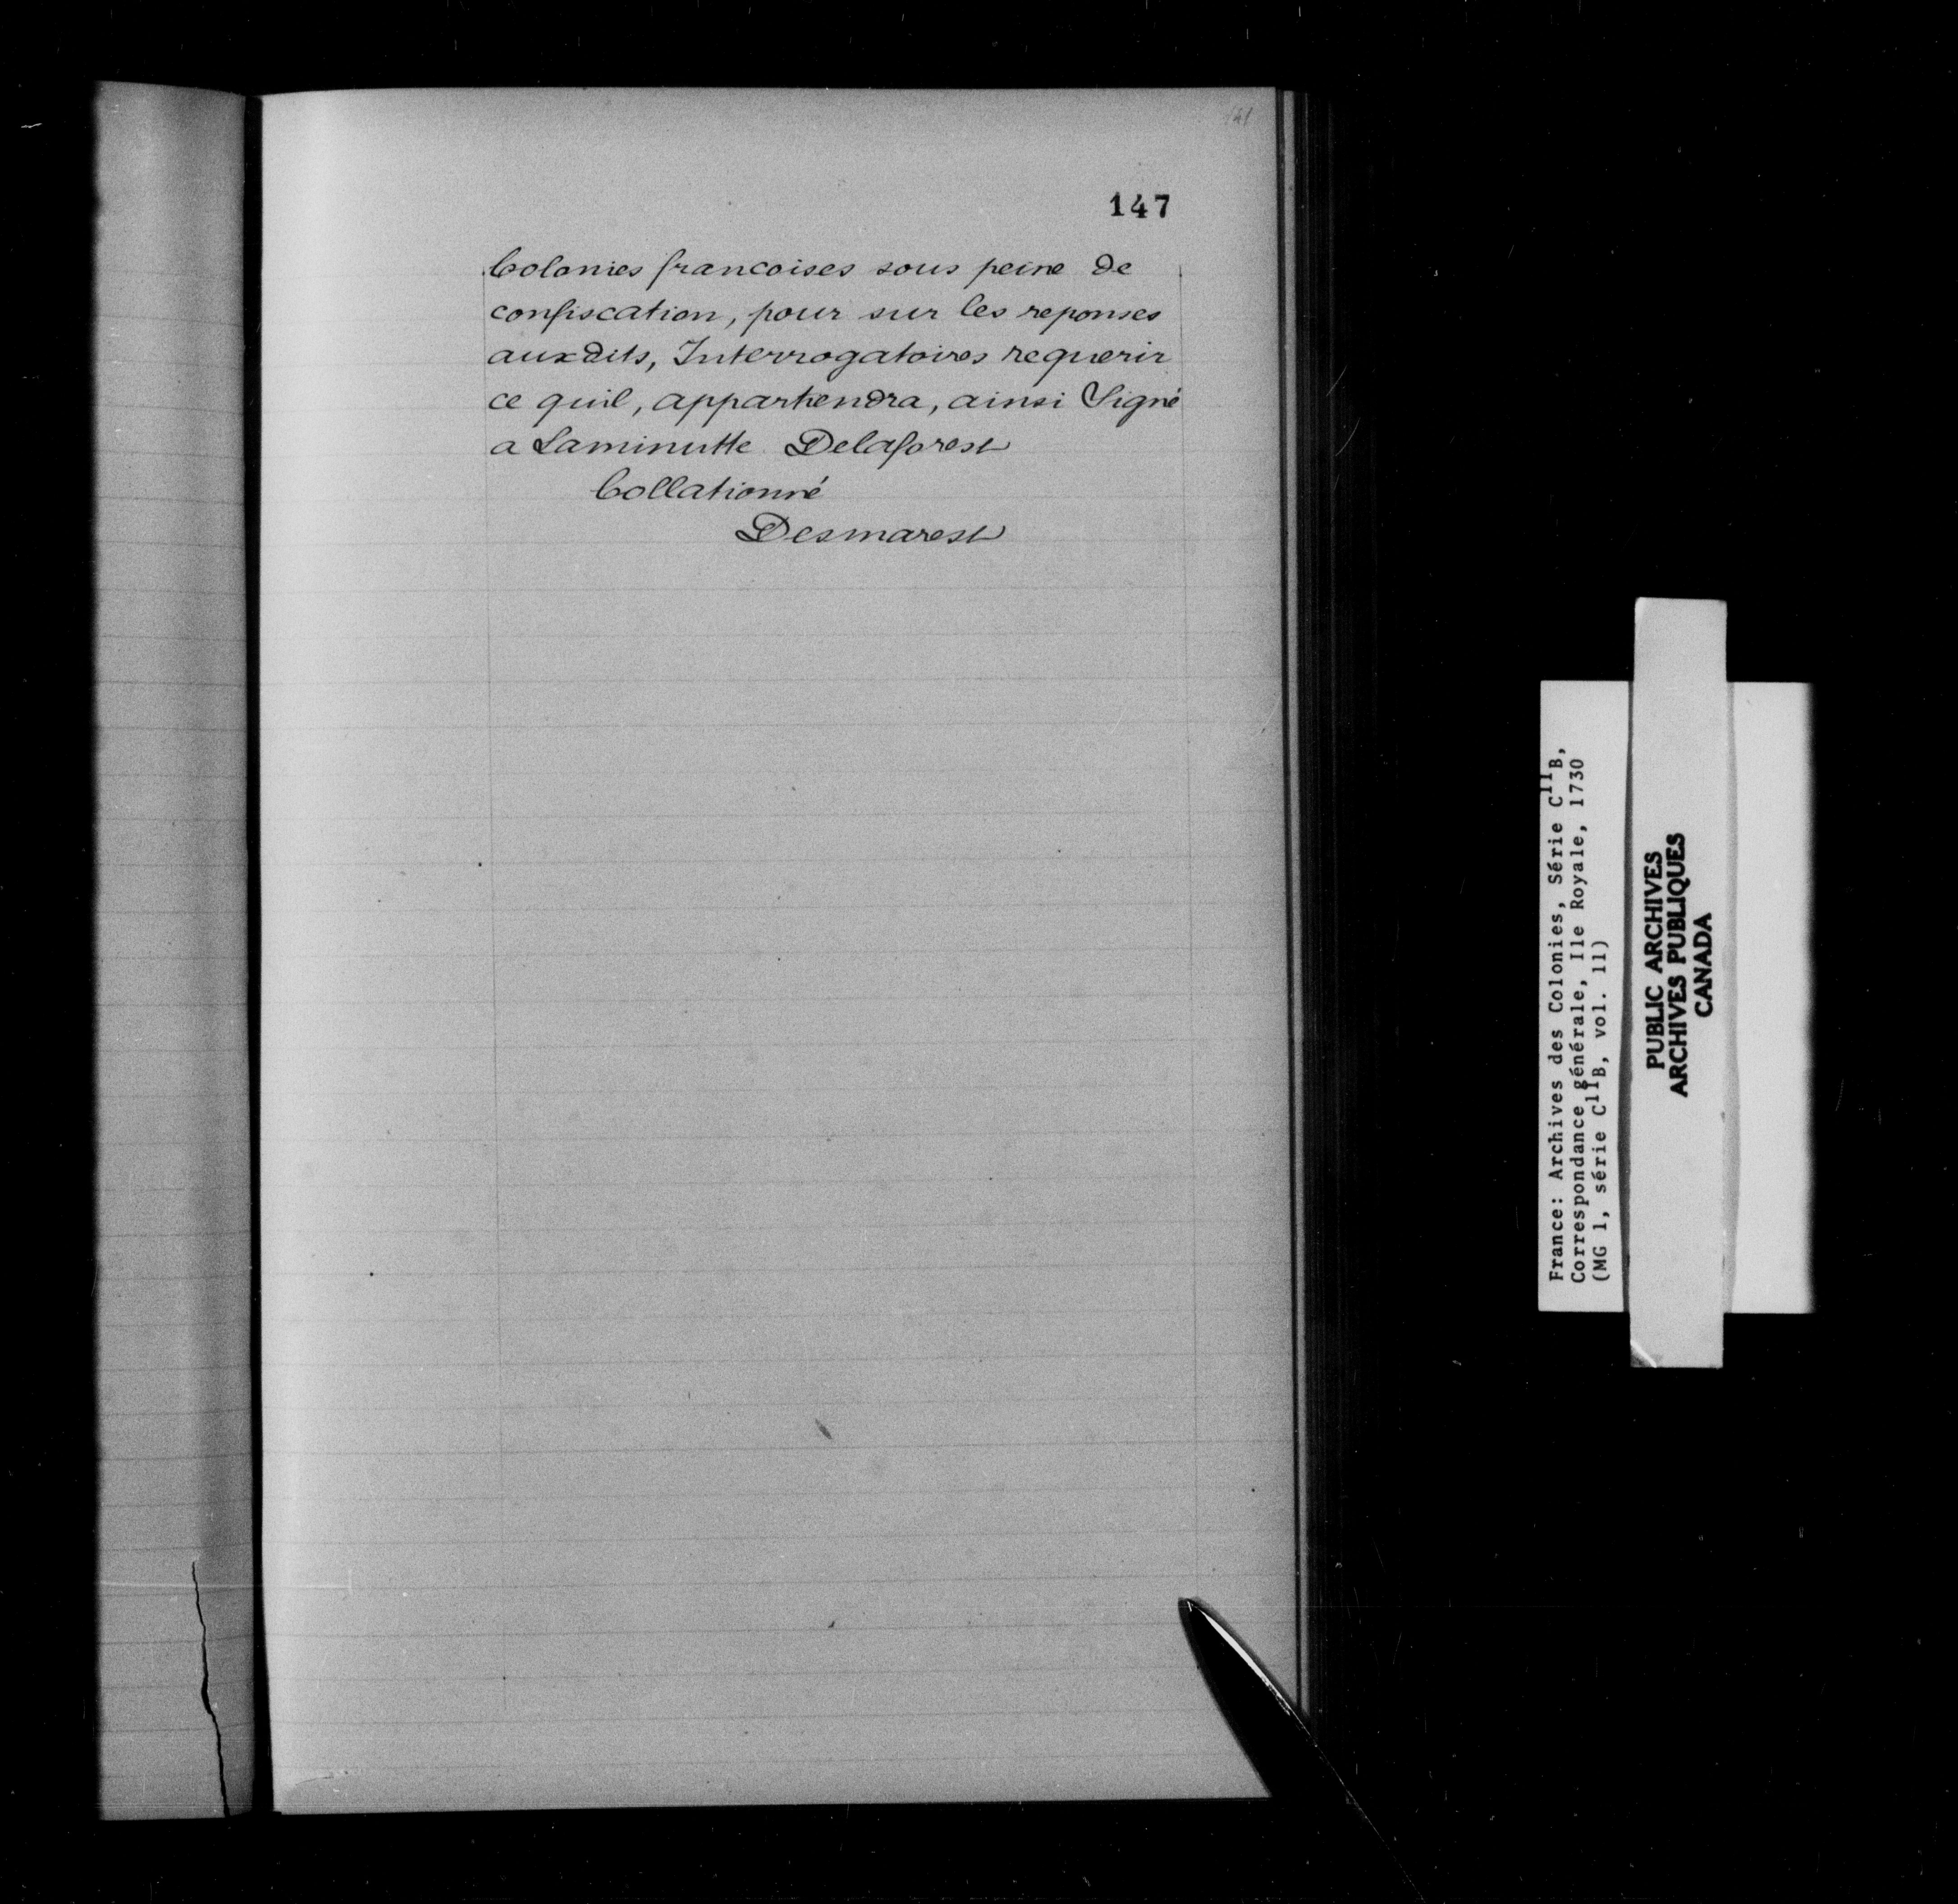 147
Colonies francoises sous peine de
confiscation, pour sur les reponses
auxdits, Interrogatoires requerir
ce quil, appartiendra, ainsi Signé
a Laminutte Delaforest
Collationné
Desmarest
France: Archives des Colonies, Série C11B,
Correspondance générale, Ile Royale, 1730
(MG 1, série C11B, vol. 11)
PUBLIC ARCHIVES
ARCHIVES PUBLIQUES
CANADA